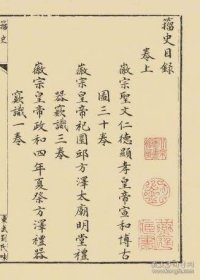 籀史目錄
卷上
徽宗聖文仁德顯孝皇帝宣和博古
圖三十卷
徽宗皇帝祀圜邱方澤太廟明堂禮
器款識三卷
徽宗皇帝政和四年夏祭方澤禮器
款識一卷
籀史